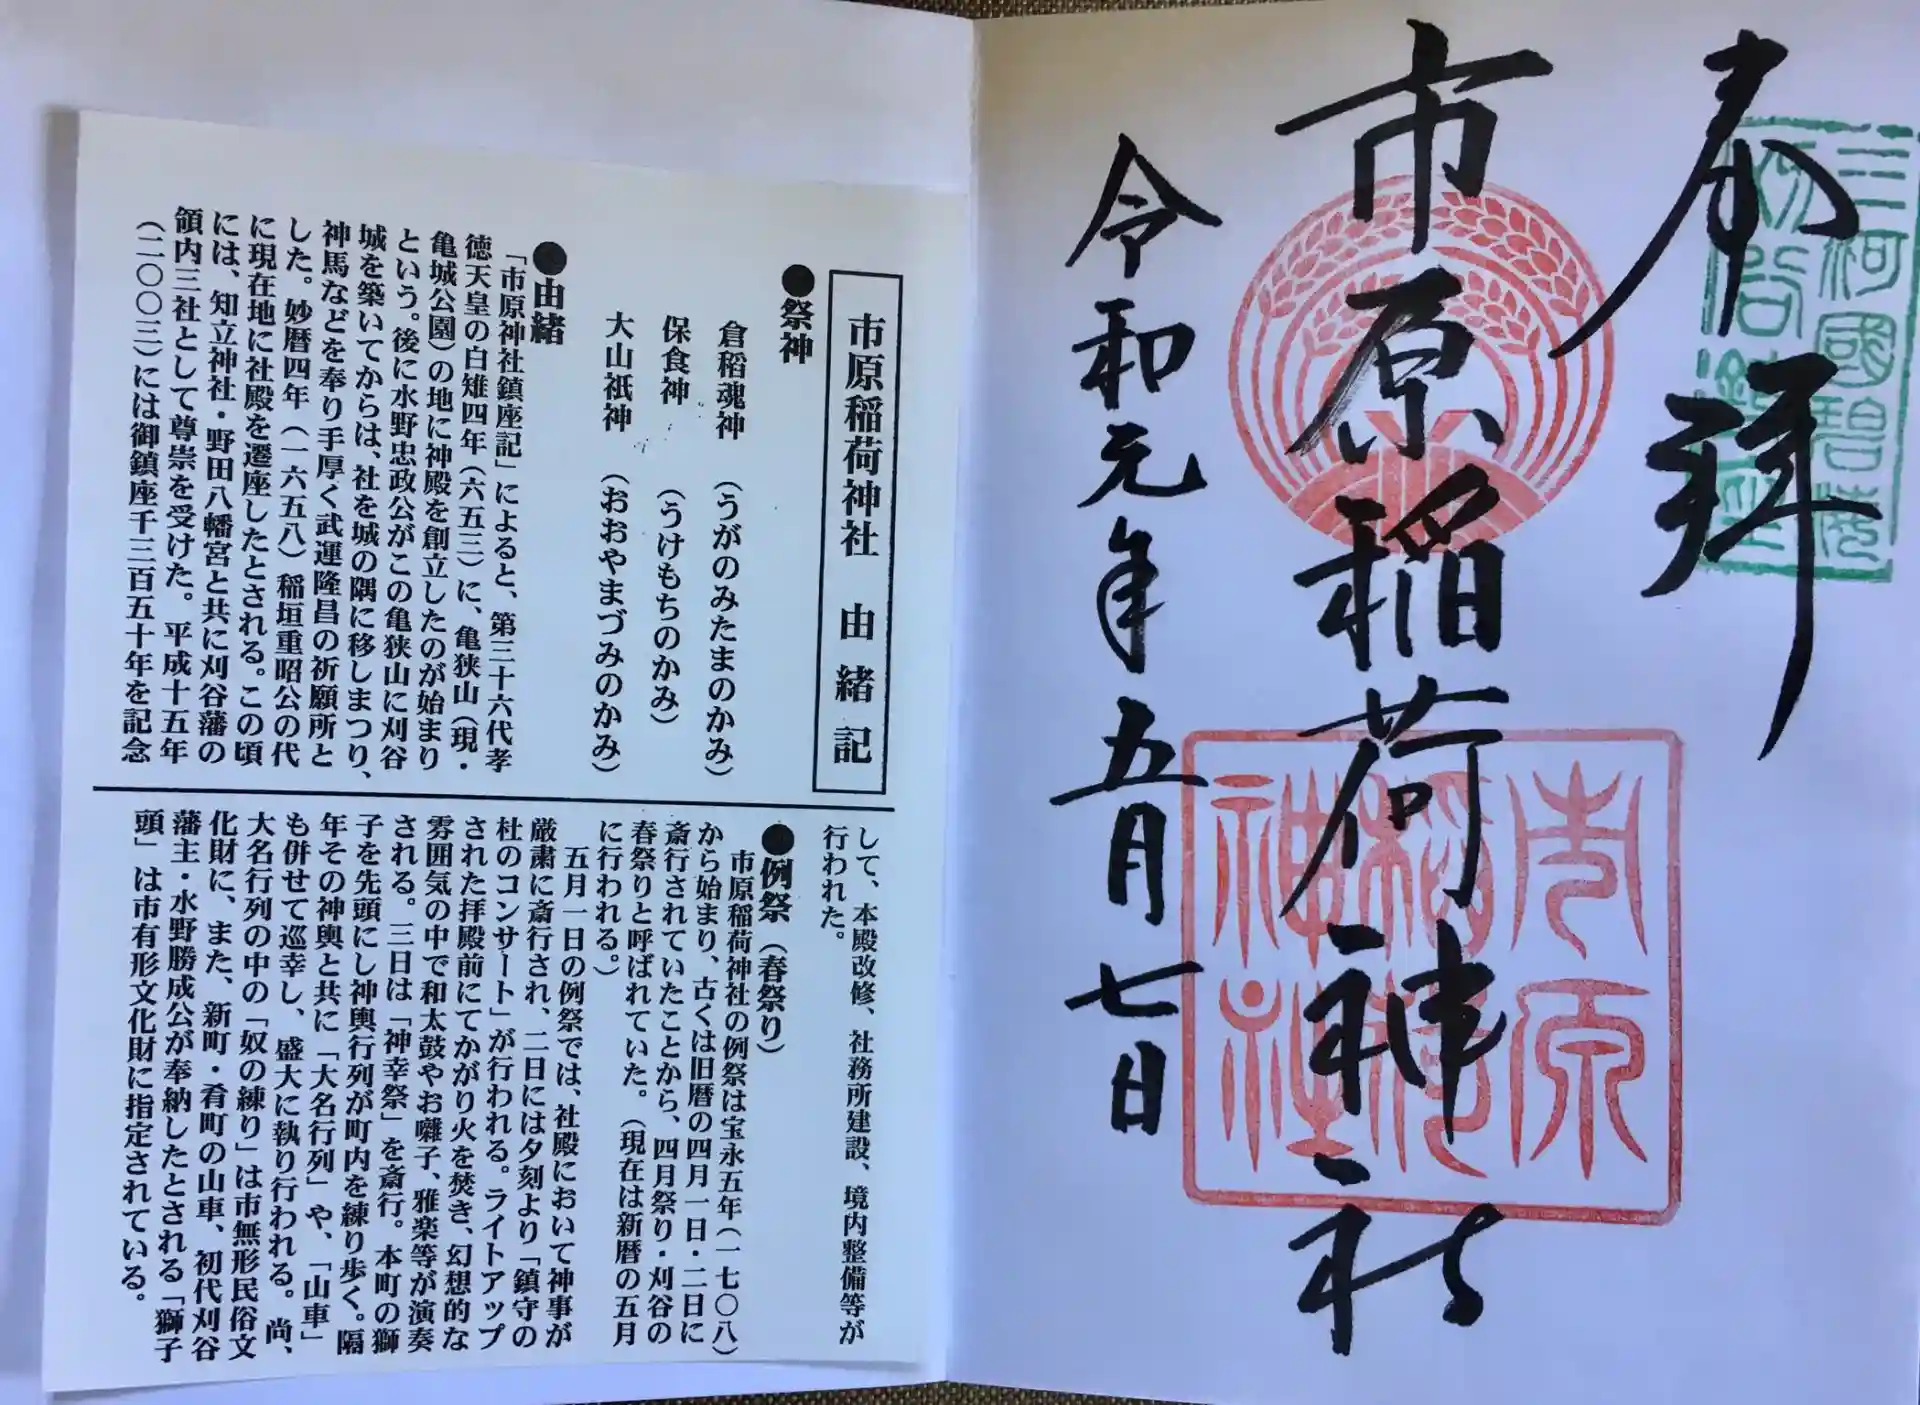 奉拝
三河國碧海
市原稲荷神社
市原
稲荷
神社
令和元年五月七日
市原稲荷神社 由緒記
●祭神
倉稲魂神 (うがのみたまのかみ)
保食神 (うけもちのかみ)
大山祇神 (おおやまづみのかみ)
●由緒
「市原神社鎮座記」によると、第三十六代孝
徳天皇の白雉四年(六五三)に、亀狭山(現・
亀城公園)の地に神殿を創立したのが始まり
という。後に水野忠政公がこの亀狭山に刈谷
城を築いてからは、社を城の隅に移しまつり、
神馬などを奉り手厚く武運隆昌の祈願所と
した。妙暦四年(一六五八)稲垣重昭公の代
に現在地に社殿を遷座したとされる。この頃
には、知立神社・野田八幡宮と共に刈谷藩の
領内三社として尊崇を受けた。平成十五年
(二〇〇三)には御鎮座千三百五十年を記念
して、本殿改修、社務所建設、境内整備等が
行われた。
●例祭(春祭り)
市原稲荷神社の例祭は宝永五年(一七〇八)
から始まり、古くは旧暦の四月一日・二日に
斎行されていたことから、四月祭り・刈谷の
春祭りと呼ばれていた。(現在は新暦の五月
に行われる。)
五月一日の例祭では、社殿において神事が
厳粛に斎行され、二日には夕刻より「鎮守の
杜のコンサート」が行われる。ライトアップ
された拝殿前にてかがり火を焚き、幻想的な
雰囲気の中で和太鼓やお囃子、雅楽等が演奏
される。三日は「神幸祭」を斎行。本町の獅
子を先頭にし神輿行列が町内を練り歩く。隔
年その神輿と共に「大名行列」や、「山車」
も併せて巡幸し、盛大に執り行われる。尚、
大名行列の中の「奴の練り」は市無形民俗文
化財に、また、新町・肴町の山車、初代刈谷
藩主・水野勝成公が奉納したとされる「獅子
頭」は市有形文化財に指定されている。